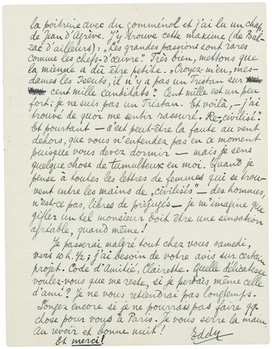 la poitrine avec du gomménol et j'ai lu un chap.
de Jean d'Agrève. J'y trouve cette maxime (de Bal-
zac d'ailleurs): "Les grandes passions sont rares
comme les chefs-d'œuvre." Très bien, mettons que
la mienne a dû être petite. Croyez-m'en, mes-
dames les Iseuts, il n'y a pas un Tristan sur
cent mille candidats! Cent mille est un peu
fort: je ne suis pas un Tristan. Et voilà, j'ai
trouvé de quoi me sentir rassuré. Re-civilisé.
Et pourtant – c'est peut-être la faute au vent
dehors, que vous n'entendez pas en ce moment
puisque vous devez dormir – mais je sens
quelque chose de tumultueux en moi. Quand je
pense à toutes les lettres de femmes qui se trou-
vent entre les mains de "civilisés" – des hommes,
n'est-ce pas, libres de préjugés – je m'imagine que
gifler un tel monsieur doit être une sensation
agréable, quand même!
Je passerai malgré tout chez vous samedi,
vers 10 h. ½; j'ai besoin de votre avis sur certain
projet. Code d'Amitié, Clairette. Quelle délicatesse
voulez-vous que me reste, si je perdais même celle
d'ami? Je ne vous retiendrai pas longtemps.
Songez encore si je ne pourrais pas faire qq.
chose pour vous à Paris. Je vous serre la main.
Au revoir et bonne nuit!
Eddy
Et merci!